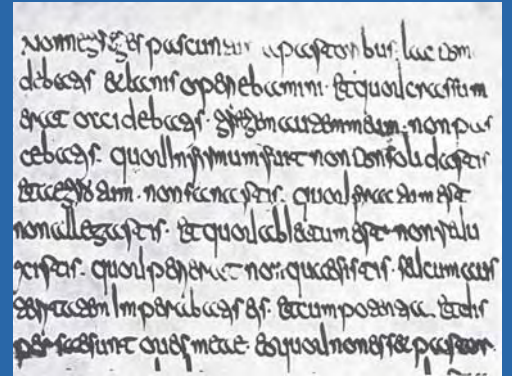 Nonne greges pascuntur a pastoribus. lac com
debatis et lanis operiebamini. et quod crassum
erat occidebatis. gregem autem meum. non pas
cebatis. quod infirmum fuit non consolidastis
non sanastis. quod fractum est
non allegastis. et quod est non
xistis. quod perierat non quaesistis. sed cum aus
imperabatis eis. et cum et dis
persae sunt oves meae. eo quod non esset pastor.